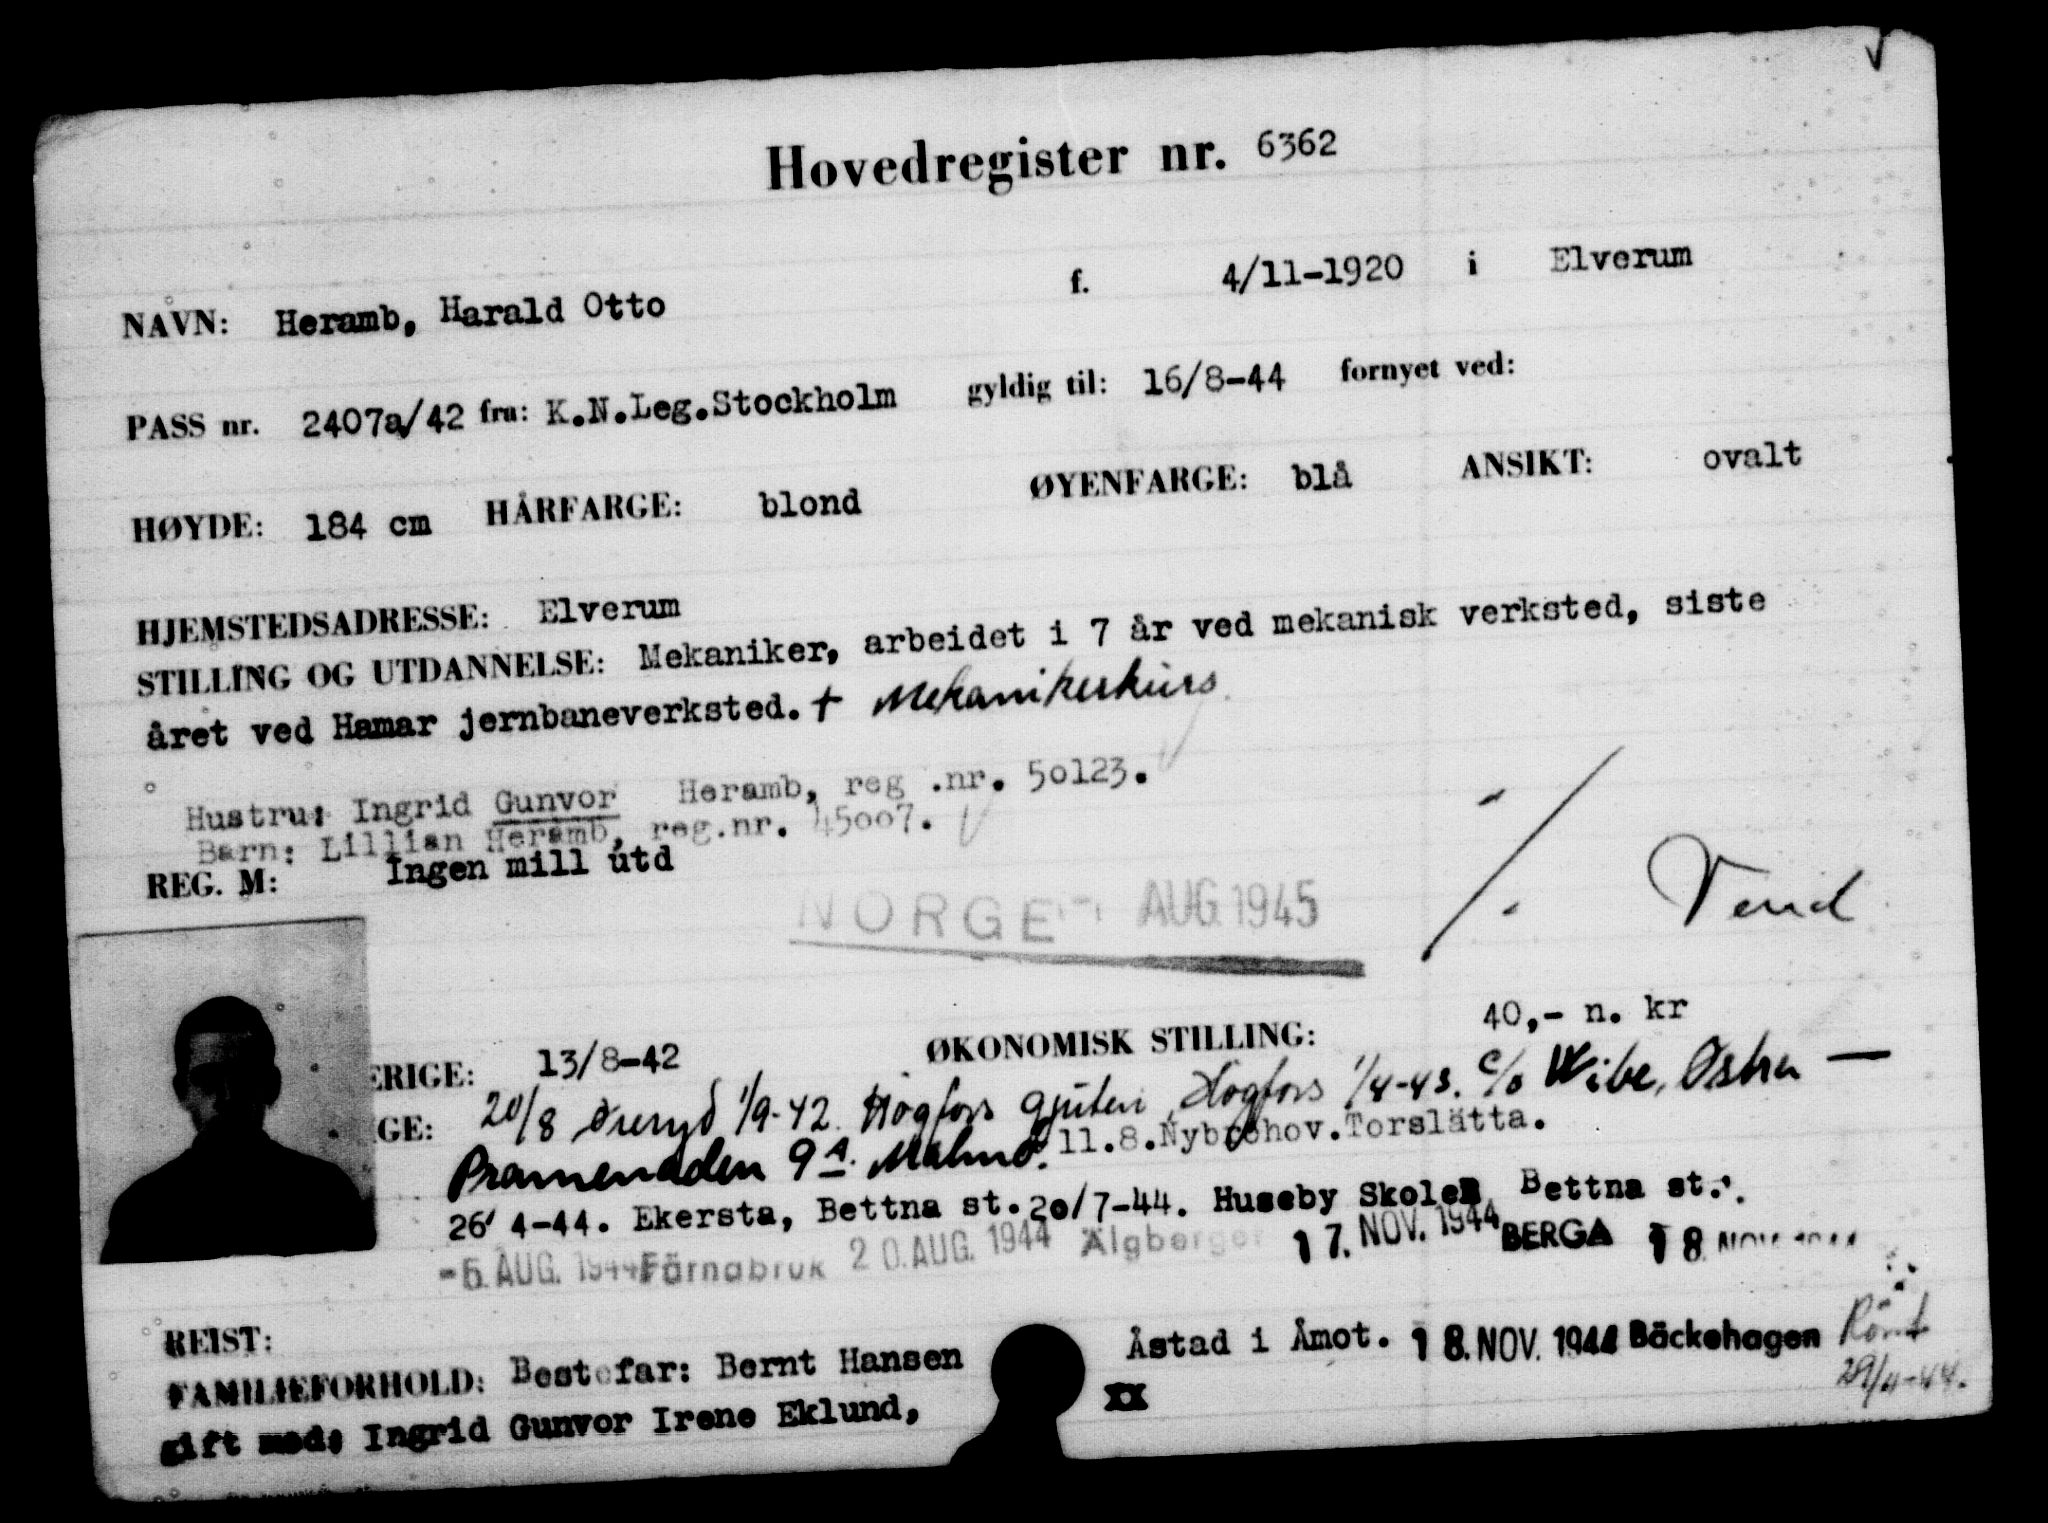 Hovedregister nr. 6362
NAVN: Heramb, Harald Otto f. 4/11-1920 i Elverum
PASS nr. 2407a/42 fra: K.N.Leg.Stockholm gyldig til: 16/8-44 fornyet ved:
HØYDE: 184 cm HÅRFARGE: blond ØYENFARGE: blå ANSIKT: ovalt
HJEMSTEDSADRESSE: Elverum
STILLING OG UTDANNELSE: Mekaniker, arbeidet i 7 år ved mekanisk verksted, siste
året ved Hamar jernbaneverksted. + Mekanikerkurs
Hustru: Ingrid Gunvor Heramb, reg .nr. 50123.
Barn: Lillian Heramb, reg.nr. 45007.
REG. M: Ingen mill utd
NORGE AUG. 1945
% Vend
ERIGE: 13/8-42 ØKONOMISK STILLING: 40,- n. kr
GE: 20/8 Øreryd 1/9-42. Högfors gjuteri, Högfors 1/4-43. c/o Wibe, Østra —
Promenaden 9A. Malmö. 11.8.Nybrohov.Torslätta.
26/ 4-44. Ekersta, Bettna st. 20/7-44. Huseby Skolen Bettna st.
-5. AUG. 1944 Färnabruk 20. AUG. 1944 Älgberget 17. NOV. 1944 BERGA 18. NOV. 1944
REIST:
FAMILIEFORHOLD: Bestefar: Bernt Hansen Åstad i Åmot. 18. NOV. 1944 Bäckehagen Rönt
29/11-44.
gift med: Ingrid Gunvor Irene Eklund, XX